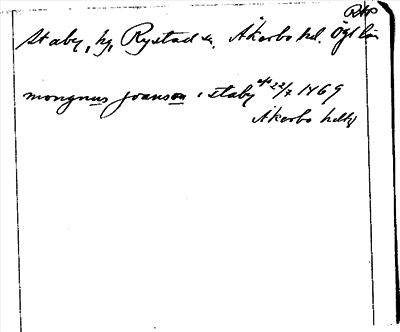 RAp
Staby, hg, Rystad sn. Åkerbo hd. Ögl län
mongnus joansson i staby of 22/7 1469
Åkerbo hdtg